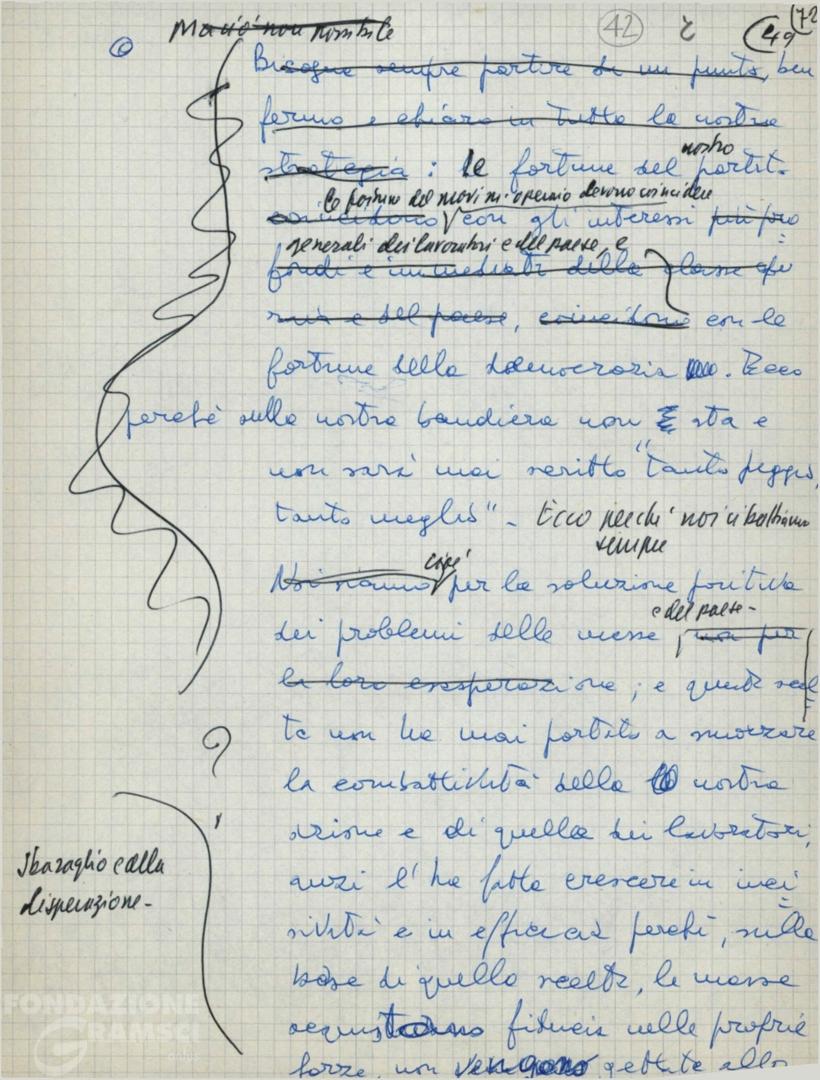 Ma ciò non possibile
42 2 49 72
Bisogna sempre partire da un punto, ben
fermo e chiaro in tutta la nostra
nostro
strategia : le fortune del partito
le fortune del movim. operaio devono coincidere
coincidono con gli interessi più pro
generali dei lavoratori e del paese, e
fondi e immediati della classe ope
raia e del paese, coincidono con le
fortune della democrazia. Ecco
perché sulla nostra bandiera non sta e
non sarà mai scritto "tanto peggio,
tanto meglio" - Ecco perché noi ci battiamo
sempre
cioè
Noi siamo per la soluzione positiva
e del paese -
dei problemi delle masse, non per
la loro esasperazione ; e questa scel
ta non ha mai portato a smorzare
la combattività della nostra
azione e di quella dei lavoratori,
anzi l'ha fatta crescere in inci
sività e in efficacia perché, sulla
base di quella scelta, le masse
acquistano fiducia nelle proprie
forze, non vengono gettate allo
?
sbaraglio e alla
disperazione -
FONDAZIONE
GRAMSCI